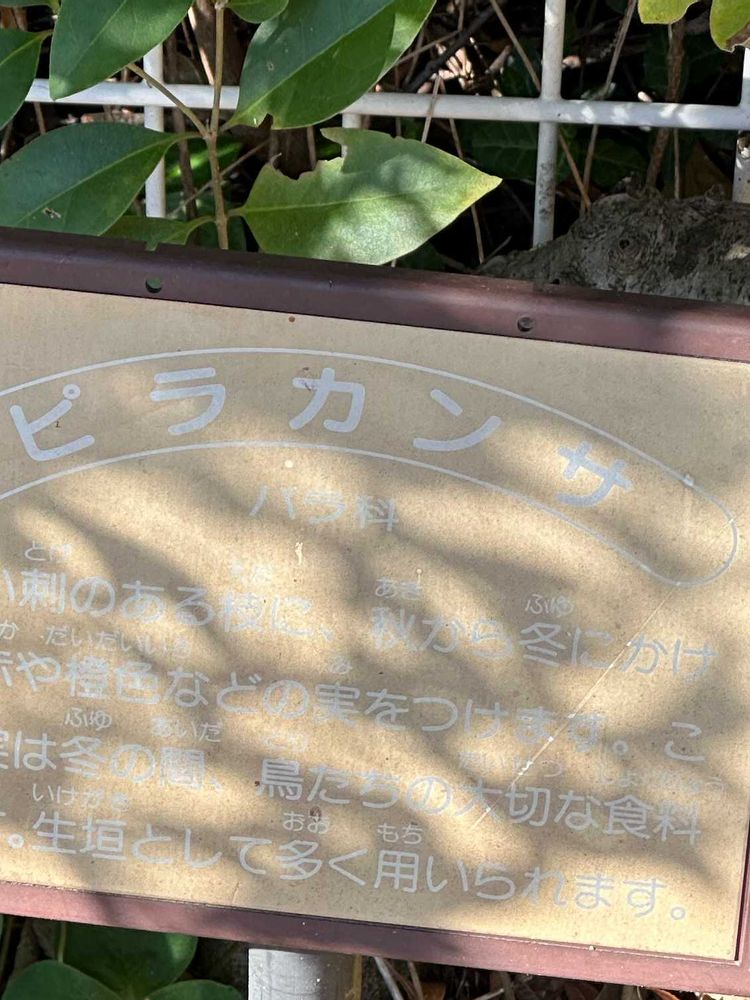 ピラカンサ
バラ科
とげ えだ あき ふゆ
い刺のある枝に、秋から冬にかけ
か だいだいいろ み
や橙色などの実をつけます。こ
ふゆ あいだ とり たいせつ しょくりょう
実は冬の間、鳥たちの大切な食料
いけがき おお もち
す。生垣として多く用いられます。